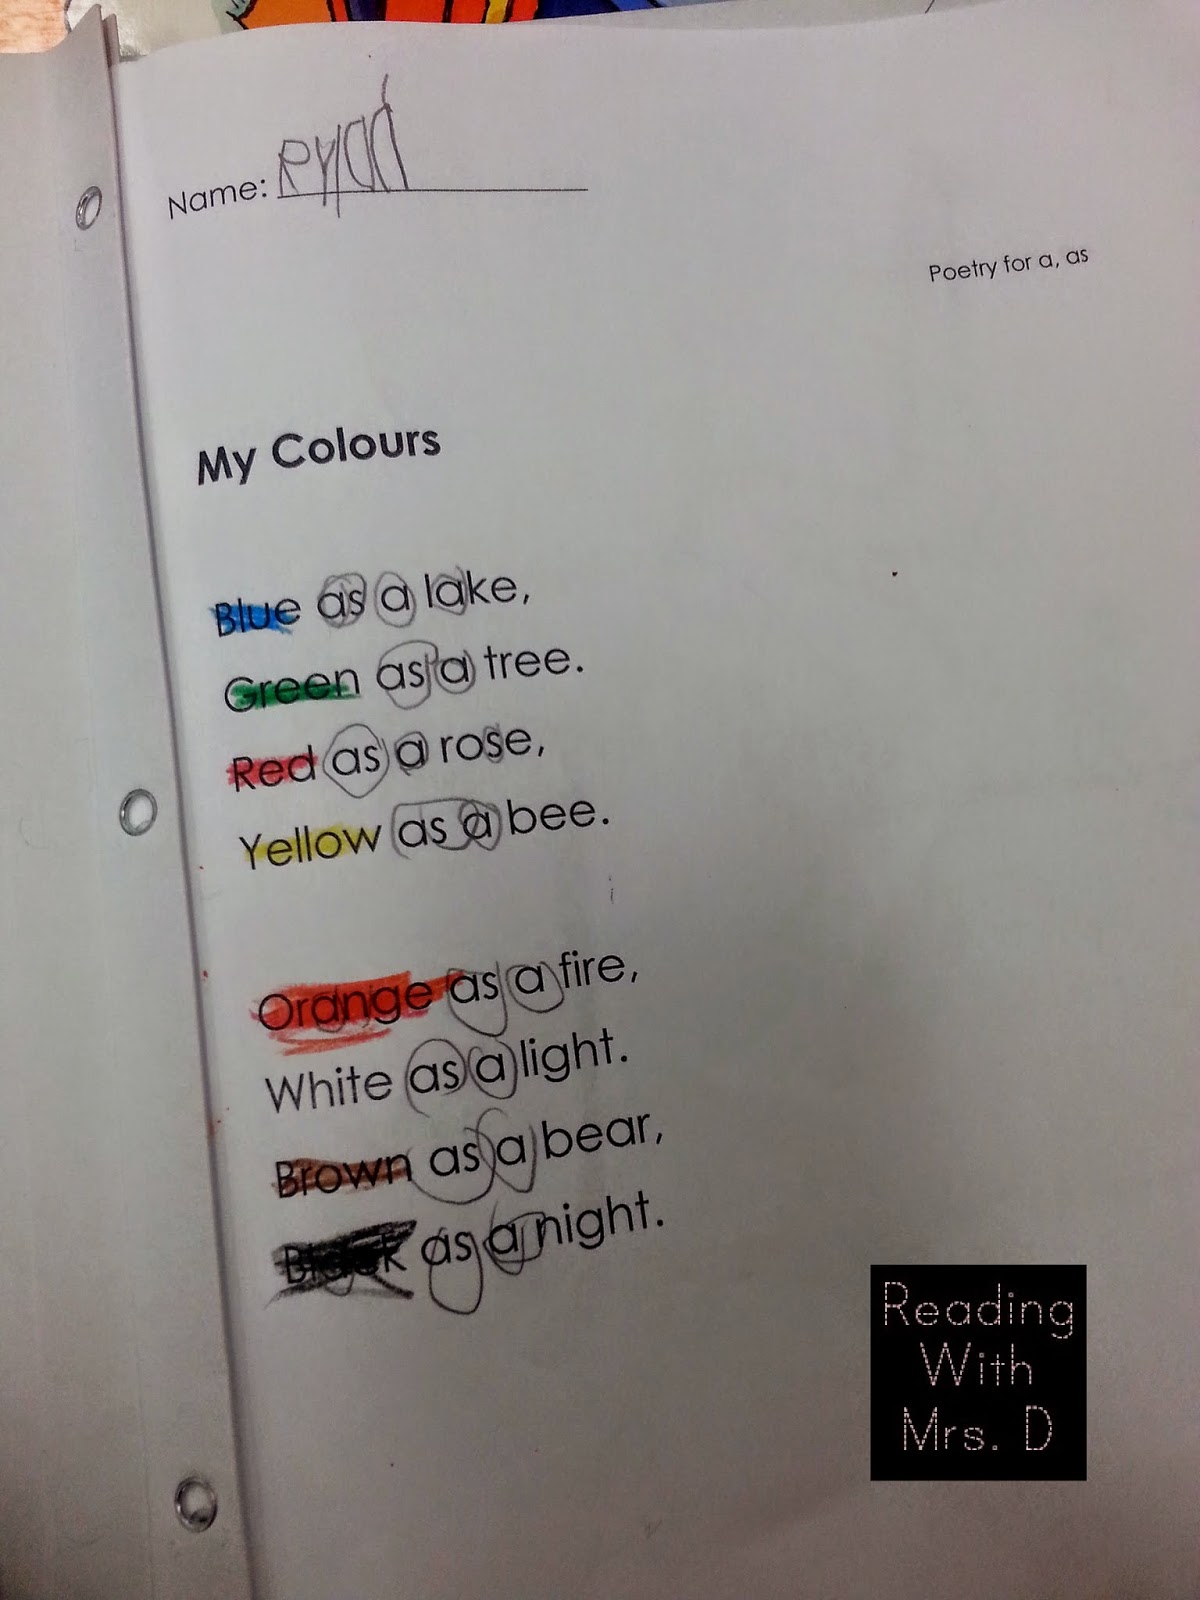 Name: Ryan
Poetry for a, as
My Colours
Blue as a lake,
Green as a tree.
Red as a rose,
Yellow as a bee.
Orange as a fire,
White as a light.
Brown as a bear,
Black as a night.
Reading
With
Mrs. D